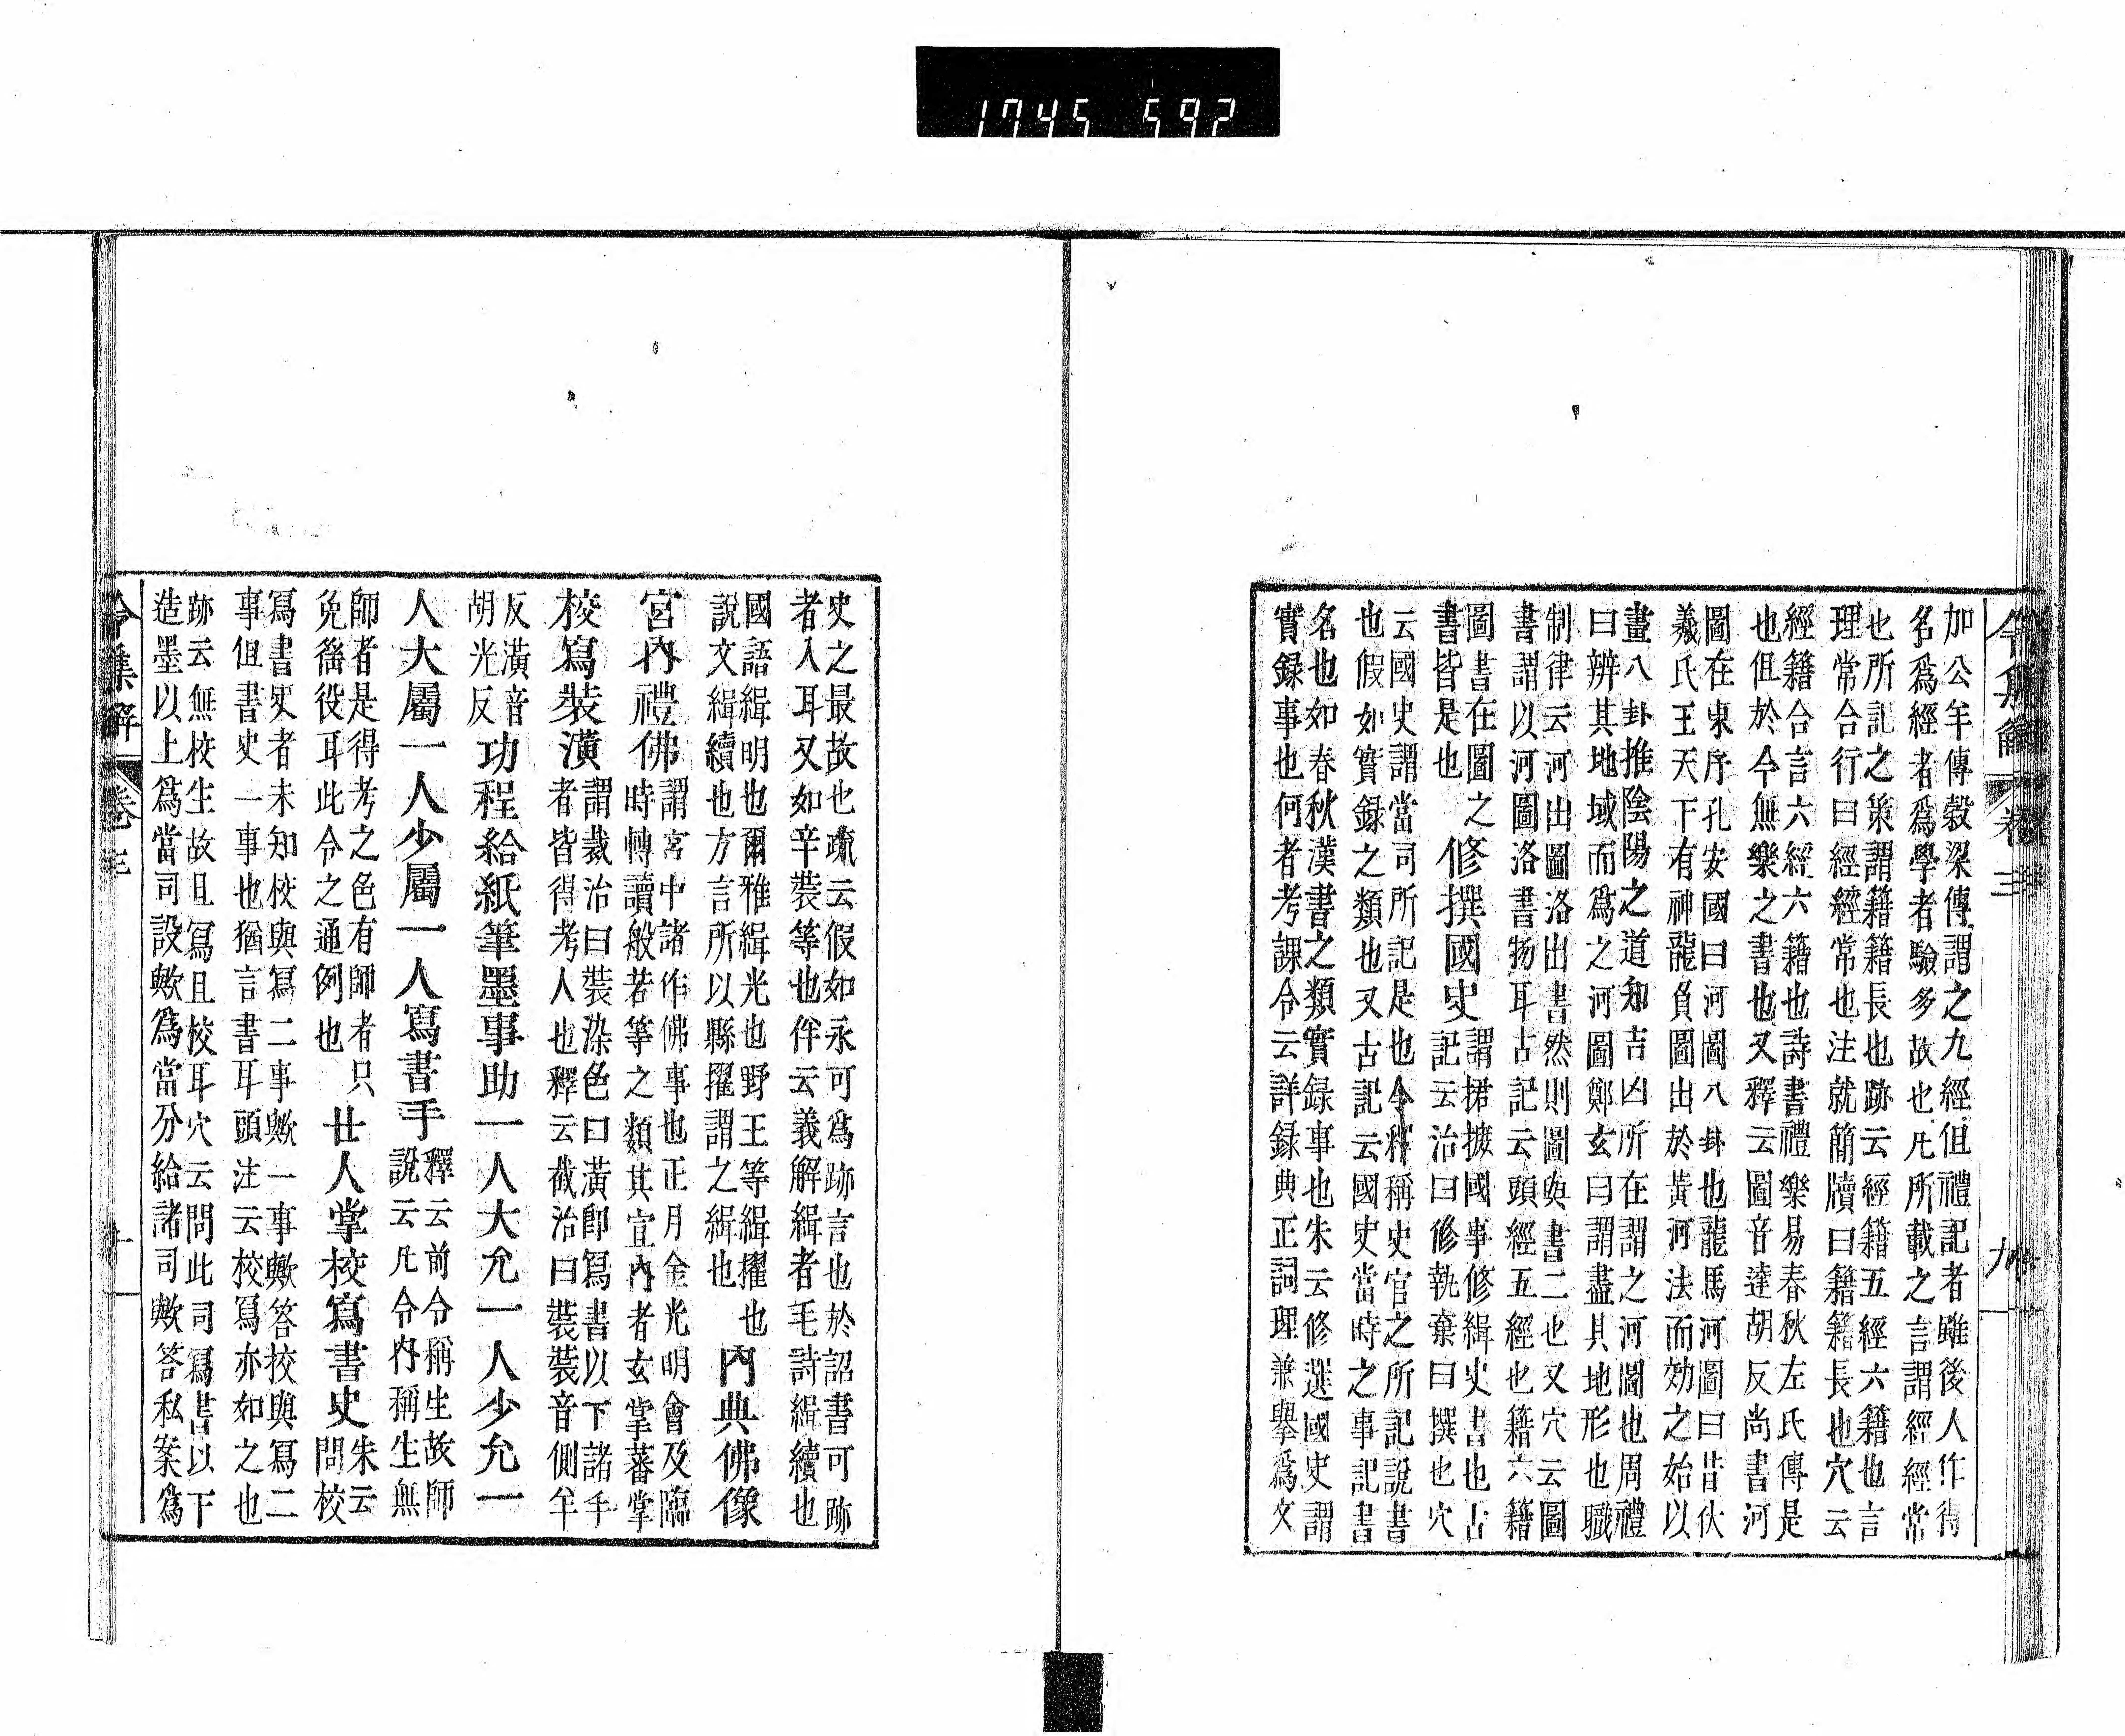 1745 592
令集解 卷三 九
加公羊傳穀梁傳謂之九經但禮記者雖後人作得
名爲經者爲學者驗多故也凡所載之言謂經經常
也所記之策謂籍籍長也跡云經籍五經六籍也言
理常合行曰經經常也注就簡牘曰籍籍長也穴云
經籍合言六經六籍也詩書禮樂易春秋左氏傳是
也但於今無樂之書也又釋云圖音達胡反尚書河
圖在東序孔安國曰河圖八卦也龍馬河圖曰昔伏
羲氏王天下有神龍負圖出於黃河法而効之始以
畫八卦推陰陽之道知吉凶所在謂之河圖也周禮
曰辨其地域而爲之河圖鄭玄曰謂畫其地形也職
制律云河出圖洛出書然則圖與書二也又穴云圖
書謂以河圖洛書物耳古記云頭經五經也籍六籍
圖書在圖之
書皆是也
修撰國史
謂捃摭國事修緝史書也古
記云治曰修執棄曰撰也穴
云國史謂當司所記是也今釋稱史官之所記說書
也假如實録之類也又古記云國史當時之事記書
名也如春秋漢書之類實録事也朱云修選國史謂
實録事也何者考課令云詳録典正詞理兼擧爲文
史之最故也疏云假如永可爲跡言也於詔書可跡
者入耳又如辛裝等也伴云義解緝者毛詩緝續也
國語緝明也爾雅緝光也野王等緝擢也
說文緝續也方言所以縣擢謂之緝也
內典佛像
宮內禮佛
謂宮中諸作佛事也正月金光明會及臨
時轉讀般若等之類其宣內者玄掌蕃掌
校寫裝潢
謂裁治曰裝染色曰潢卽寫書以下諸手
者皆得考人也釋云截治曰裝裝音側羊
反潢音
胡光反
功程給紙筆墨事助一人大允一人少允一
人大屬一人少屬一人寫書手
釋云前令稱生故師
說云凡令內稱生無
師者是得考之色有師者只
免徭役耳此令之通例也
廿人掌校寫書史
朱云
問校
寫書史者未知校與寫二事歟一事歟答挍與寫二
事但書史一事也猶言書耳頭注云校寫亦如之也
跡云無校生故且寫且校耳穴云問此司寫書以下
造墨以上爲當司設歟爲當分給諸司歟答私案爲
令集解 卷三 十